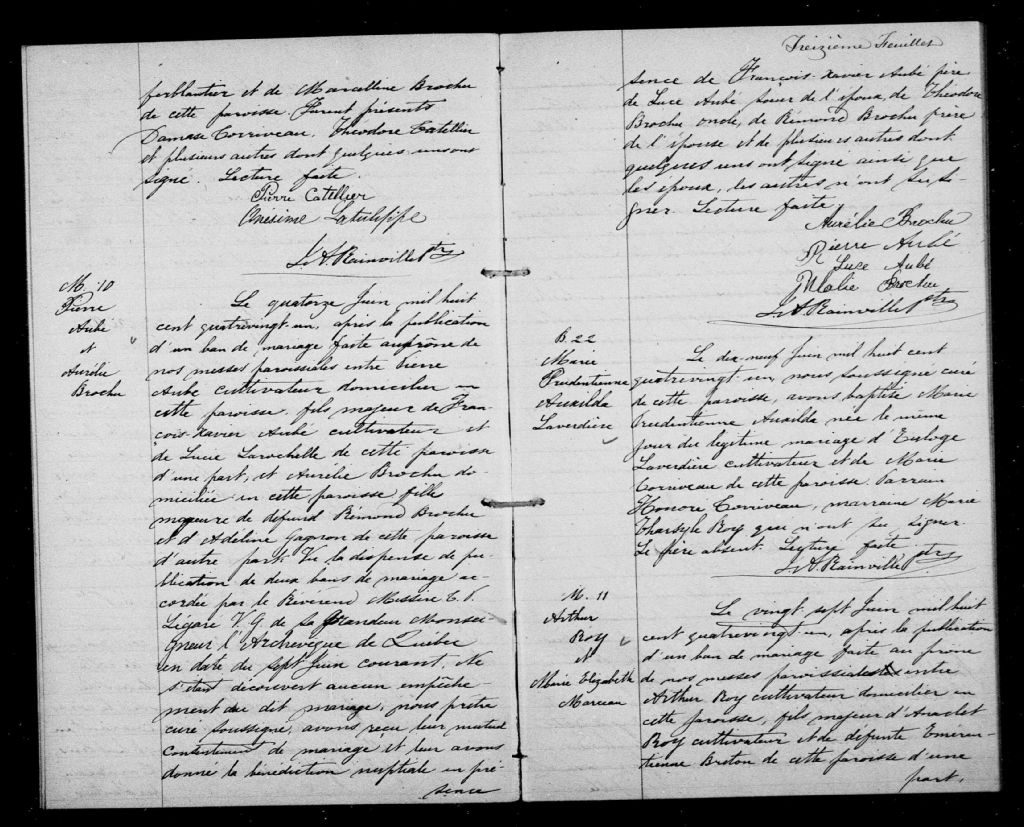 ferblantier et de Marcelline Brochu
de cette paroisse. Furent présents
Damase Corriveau, Théodore Catellier
et plusieurs autres dont quelques uns ont
signé. Lecture faite.
Pierre Catellier
Onésime Latulippe
J. A. Rainville Ptre
M. 10
Pierre
Aubé
et
Aurélie
Brochu
Le quatorze Juin mil huit
cent quatrevingt-un, après la publication
d'un ban de mariage faite au prône de
nos messes paroissiales entre Pierre
Aubé cultivateur domicilier en
cette paroisse, fils majeur de Fran-
çois-Xavier Aubé cultivateur et
de Lucie Larochelle de cette paroisse
d'une part, et Aurélie Brochu do-
miciliée en cette paroisse fille
majeure de défund Rémond Brochu
et d'Adeline Gagnon de cette paroisse
d'autre part. Vu la dispense de pu-
blication de deux bans de mariage ac-
cordée par le Révérend Messire
Légaré V. G. de Sa Grandeur Monsei-
gneur l'Archevèque de Québec
en date du sept Juin courant, Ne
s'étant découvert aucun empêche-
ment au dit mariage, nous prêtre
curé soussigné, avons reçu leur mutuel
consentement de mariage et leur avons
donné la bénédiction nuptiale en pré-
sence
Treizième Feuillet
sence de François-Xavier Aubé père
de Luce Aubé soeur de l'époux, de Théodore
Brochu oncle, de Rémond Brochu frère
de l'épouse et de plusieurs autres dont
quelques uns ont signé ainsi que
les époux, les autres n'ont su si-
gner. Lecture faite.
Aurélie Brochu
Pierre Aubé
Luce Aubé
Malie Brochu
J. A. Rainville Ptre
B. 22
Marie
Prudentienne
Auxilda
Laverdière
Le dix-neuf Juin mil huit cent
quatrevingt un, nous soussigné curé
de cette paroisse, avons baptisé Marie
Prudentienne Auxilda née le même
jour du légitime mariage d'Euloge
Laverdière cultivateur et de Marie
Corriveau de cette paroisse. Parrain
Honoré Corriveau, marraine Marie
Tharsyle Roy qui n'ont su signer.
Le père absent. Lecture faite
J. A. Rainville Ptre
M. 11
Arthur
Roy
et
Marie Elizabeth
Morceau
Le vingt sept Juin mil huit
cent quatrevingt un, après la publication
d'un ban de mariage faite au prône
de nos messes paroissiales entre
Arthur Roy cultivateur domicilier en
cette paroisse, fils majeur d'Anaclet
Roy cultivateur et de défunte Emeren-
tienne Breton de cette paroisse d'une
part,